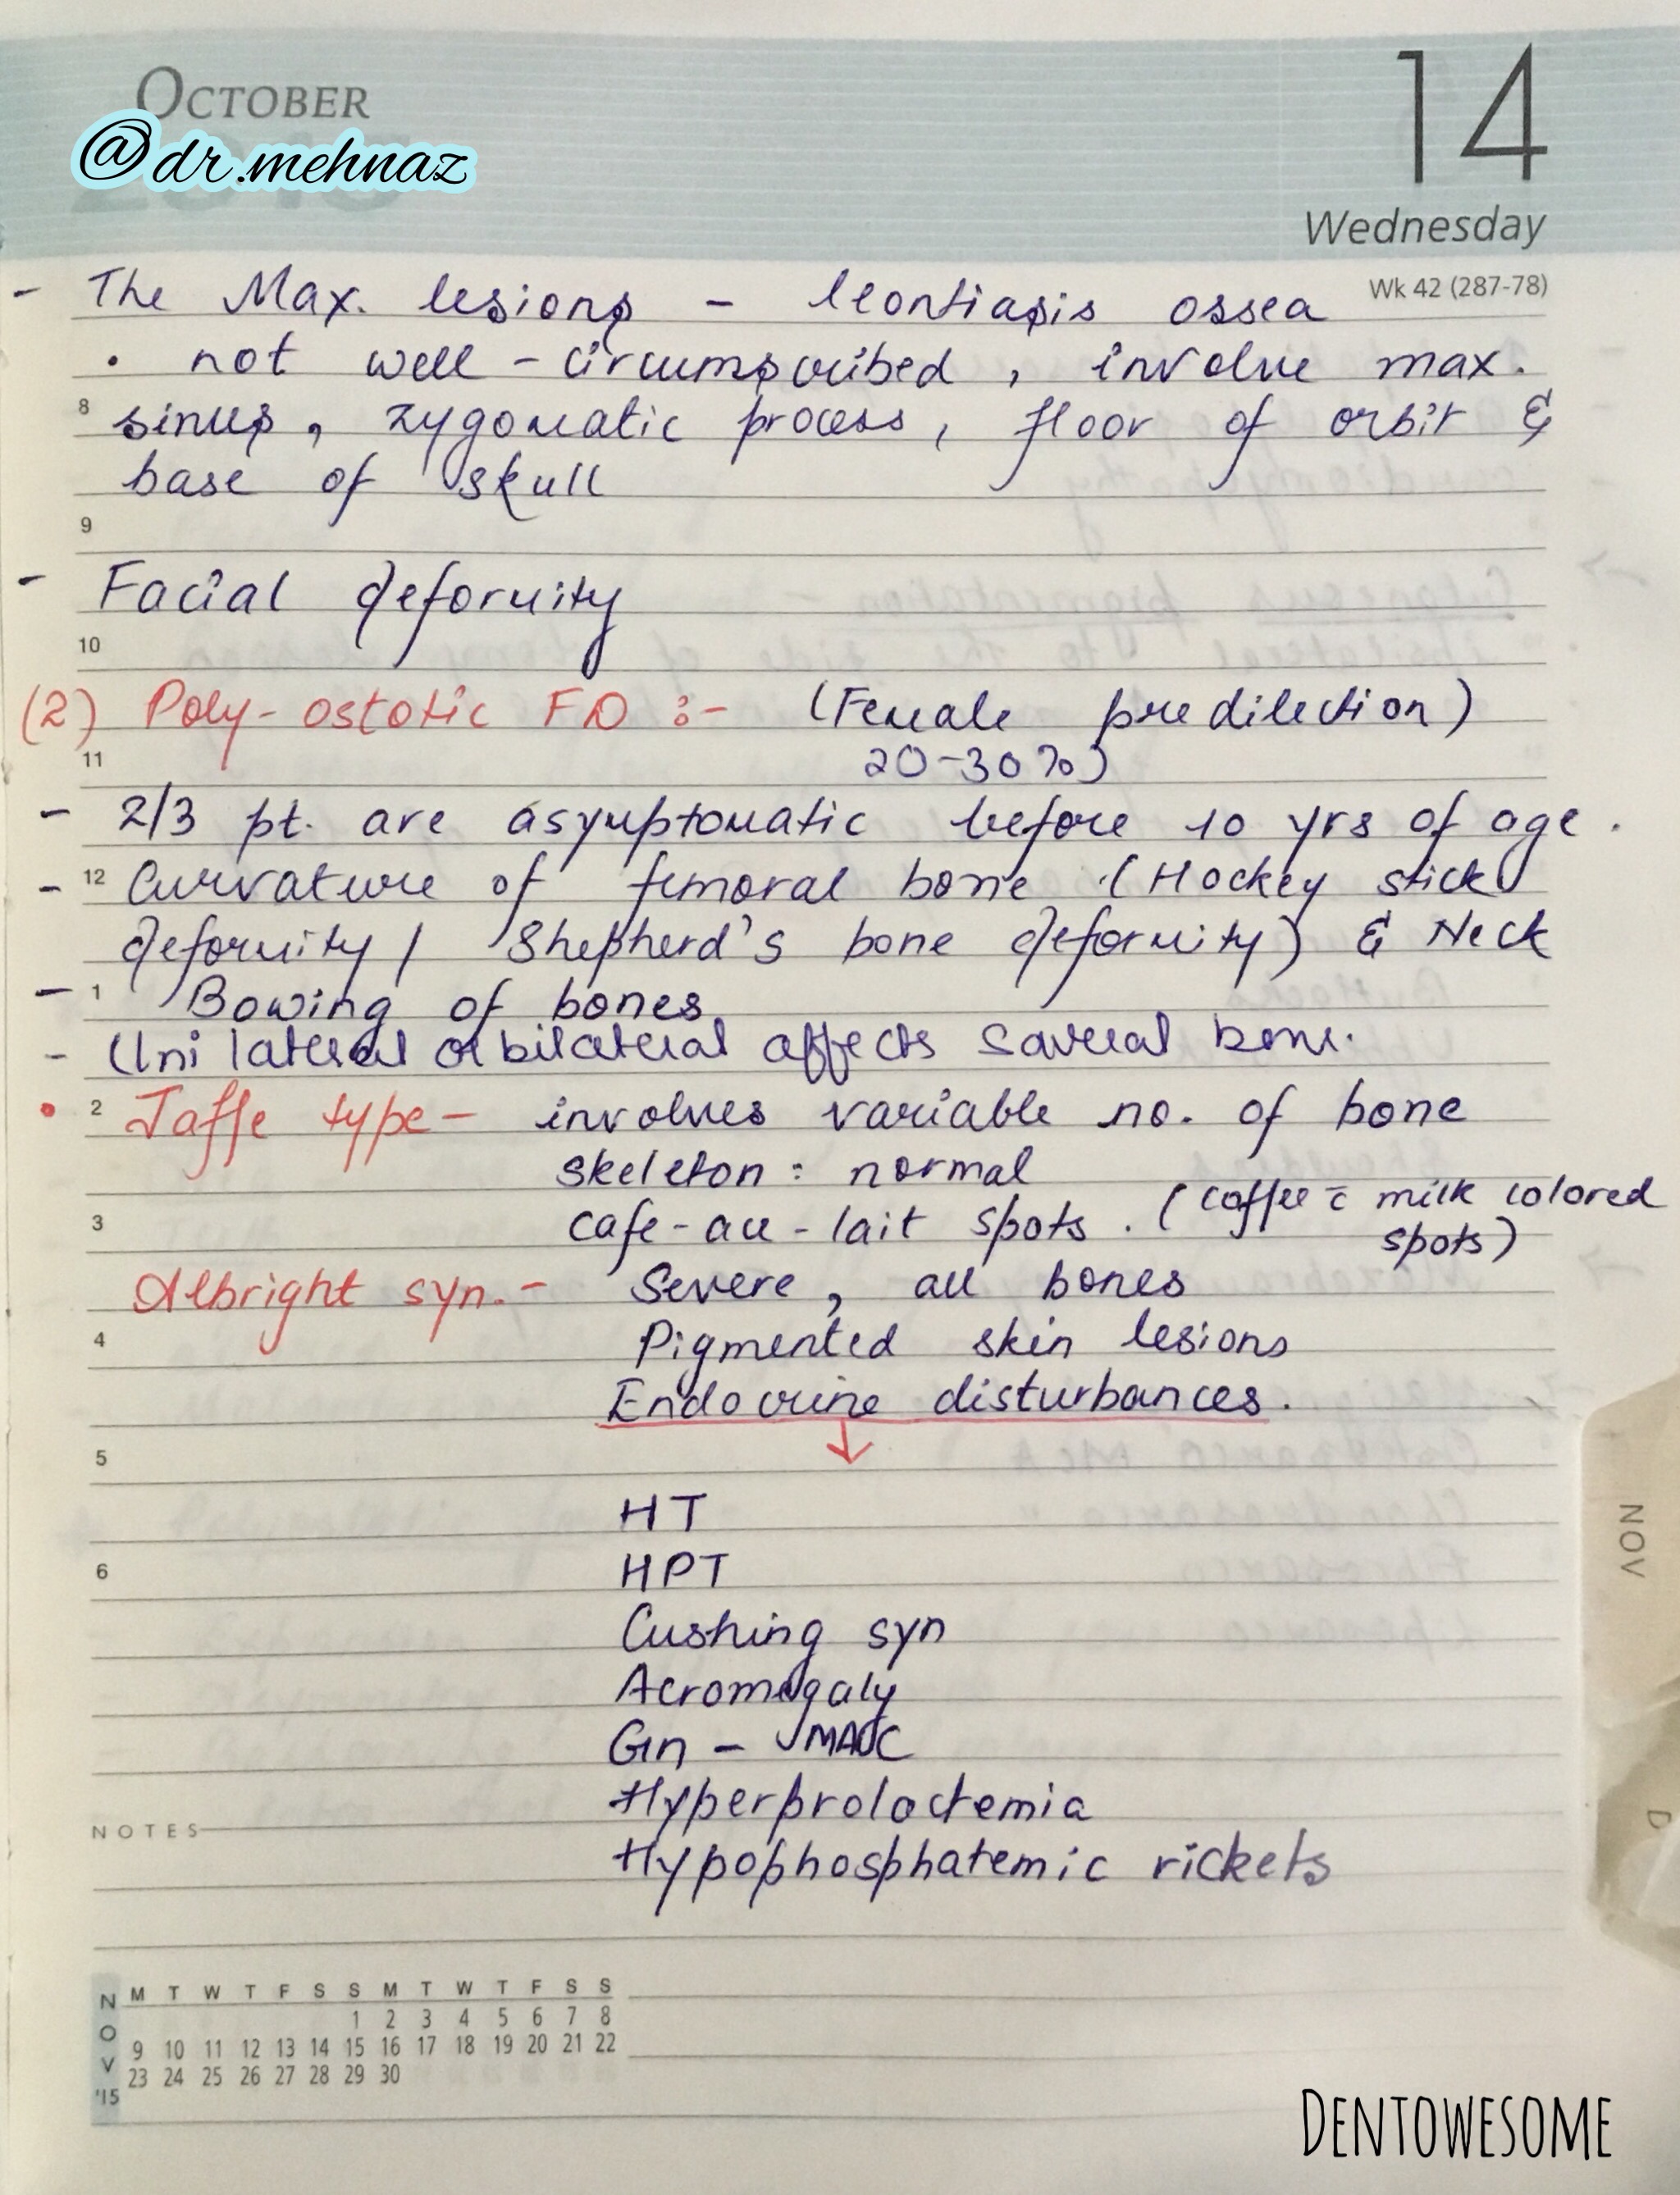 OCTOBER
@dr.mehnaz
14
Wednesday
Wk 42 (287-78)
- The Max. lesions - leontiasis ossea
• not well-circumscribed, involve max.
8 sinus, zygomatic process, floor of orbit &
base of skull
9
- Facial deformity
10
(2) Poly-ostotic FD :- (Female predilection)
11 20-30%)
- 2/3 pt. are asymptomatic before 10 yrs of age.
- 12 Curvature of femoral bone (Hockey stick
deformity / Shepherd's bone deformity) & Neck
- 1 Bowing of bones
- Unilateral or bilateral affects several bone.
• 2 Jaffe type - involves variable no. of bone
skeleton : normal
3 cafe-au-lait spots. (coffee c̄ milk colored
spots)
Albright syn. - Severe, all bones
4 Pigmented skin lesions
Endocrine disturbances.
↓
5
HT
6 HPT
Cushing syn
Acromegaly
Hyperprolactemia
NOTES
Hypophosphatemic rickets
NOV
D
NOV '15
M T W T F S S M T W T F S S
1 2 3 4 5 6 7 8
9 10 11 12 13 14 15 16 17 18 19 20 21 22
23 24 25 26 27 28 29 30
DENTOWESOME